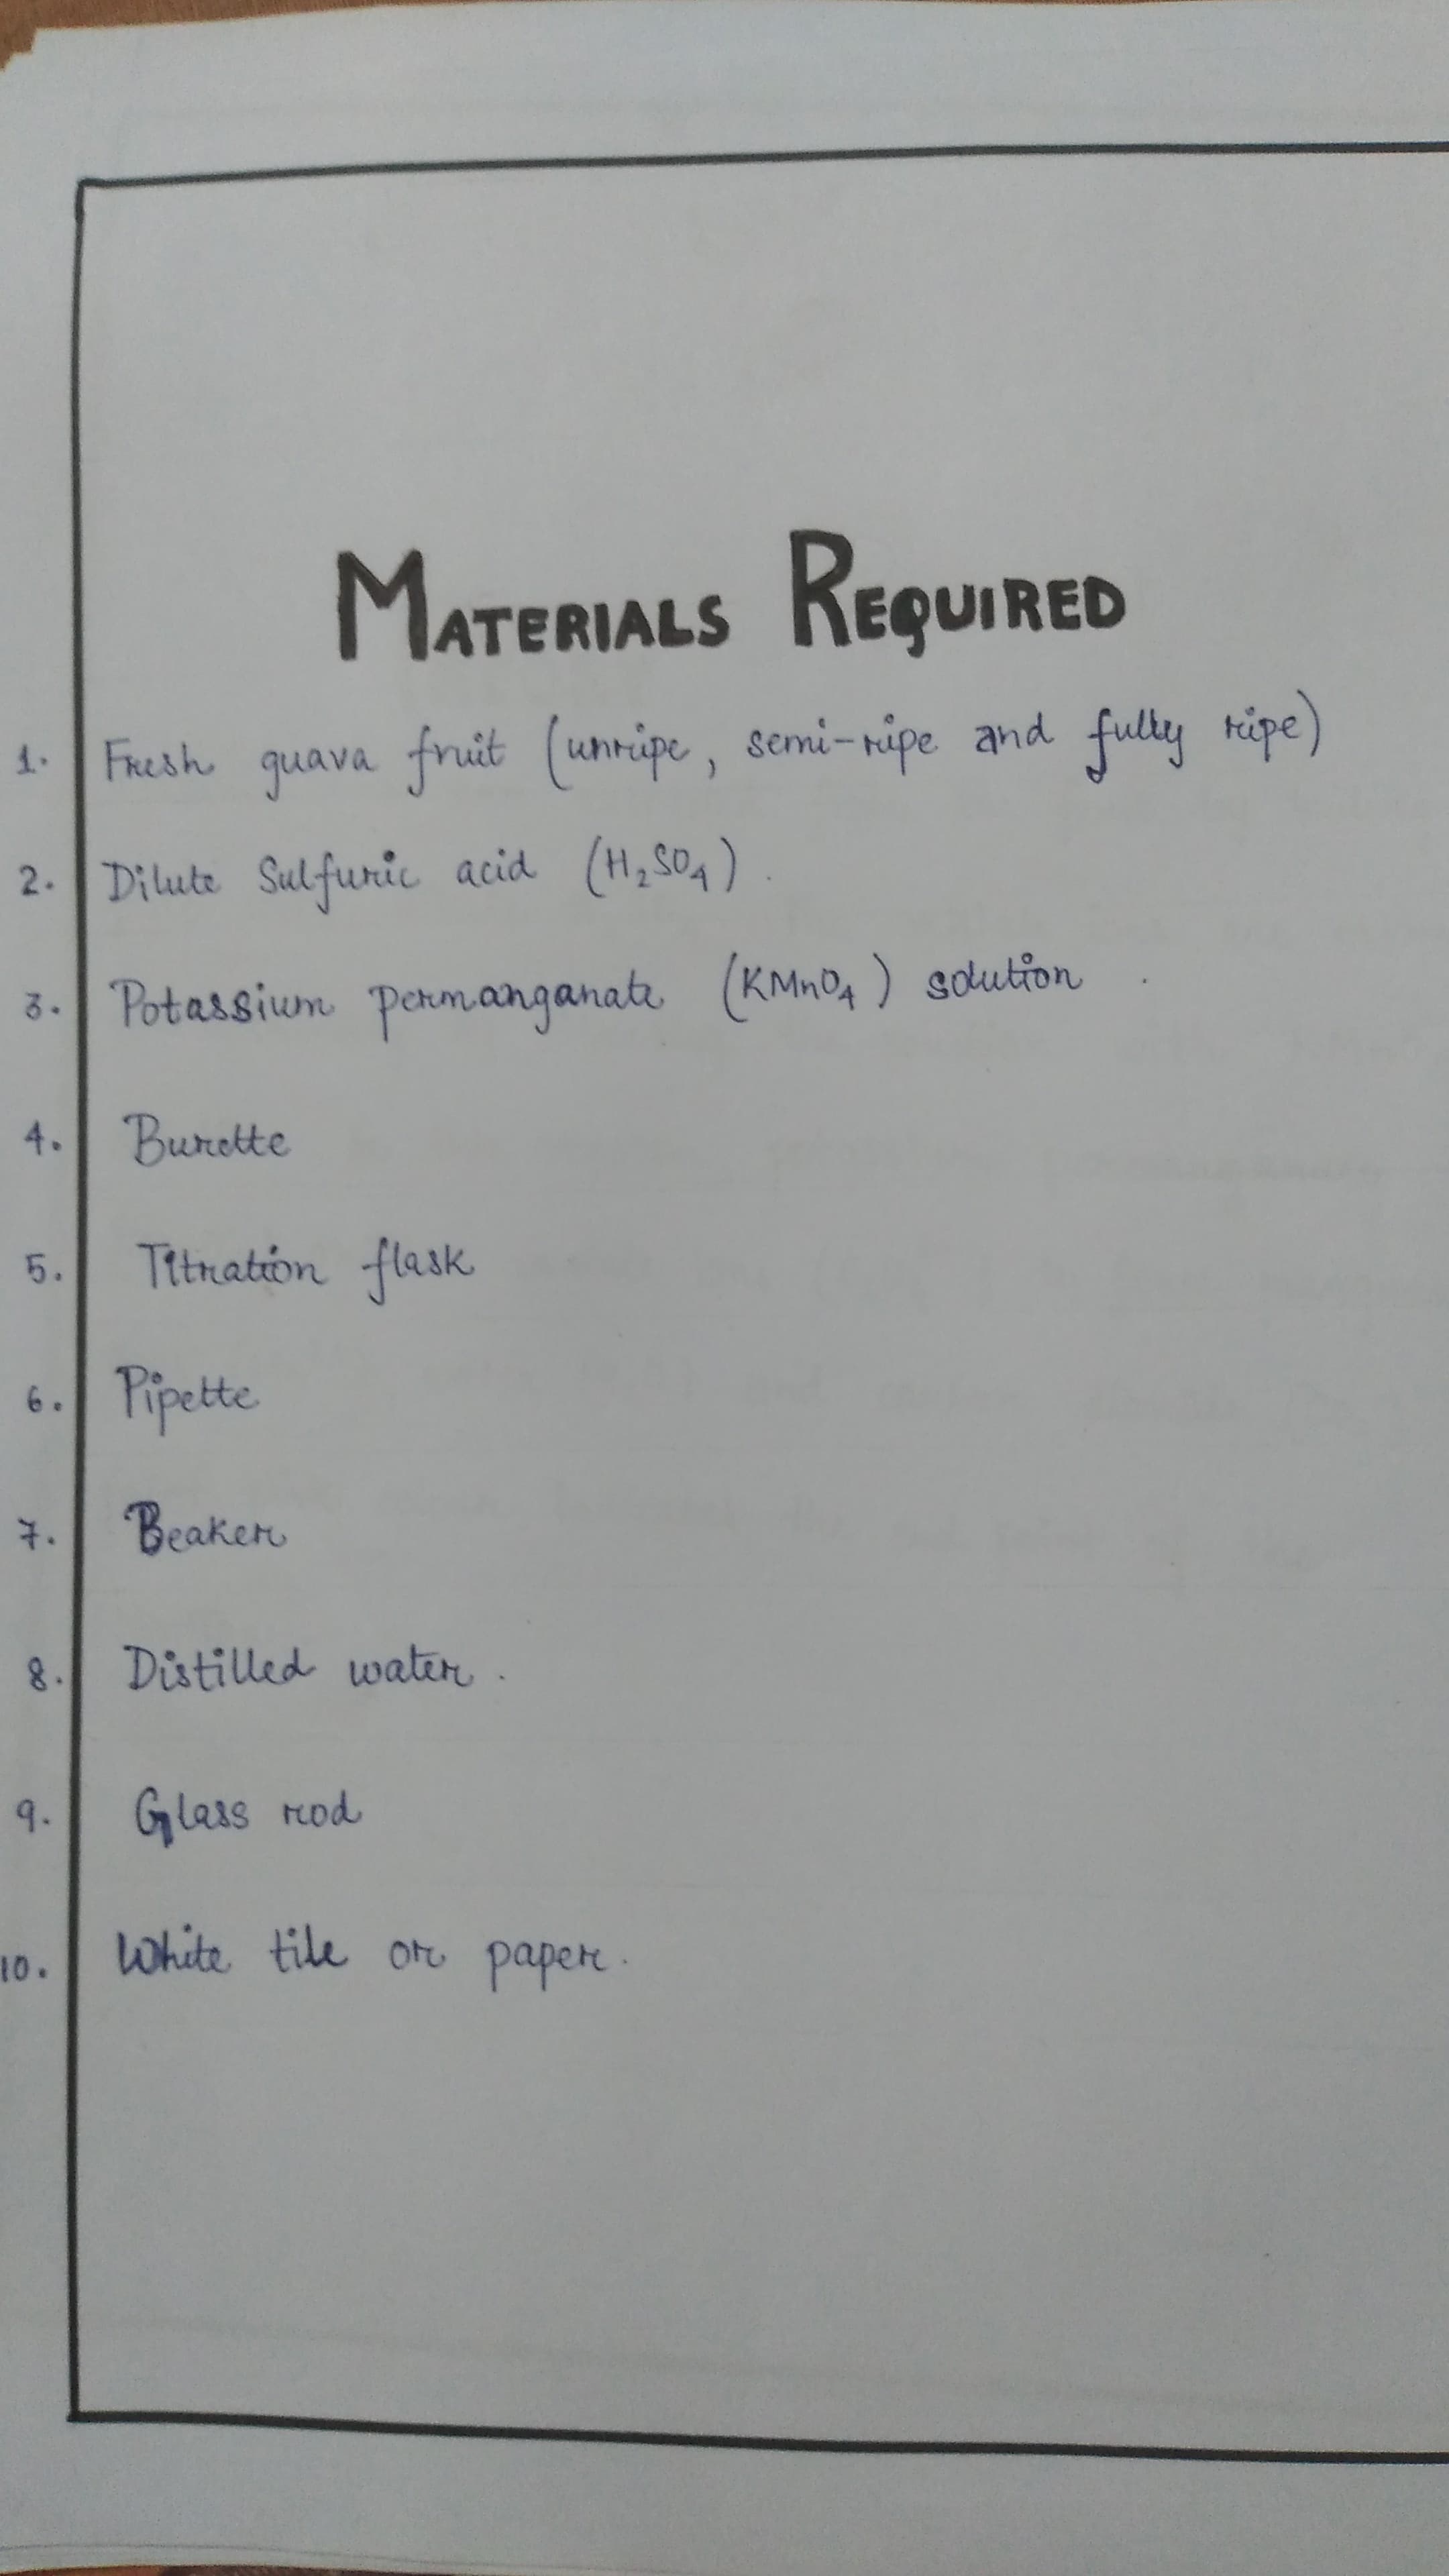 MATERIALS REQUIRED
1. Fresh guava fruit (unripe, semi-ripe and fully ripe)
2. Dilute Sulfuric acid (H₂SO₄).
3. Potassium permanganate (KMnO₄) solution.
4. Burette
5. Titration flask
6. Pipette
7. Beaker
8. Distilled water.
9. Glass rod
10. White tile or paper.